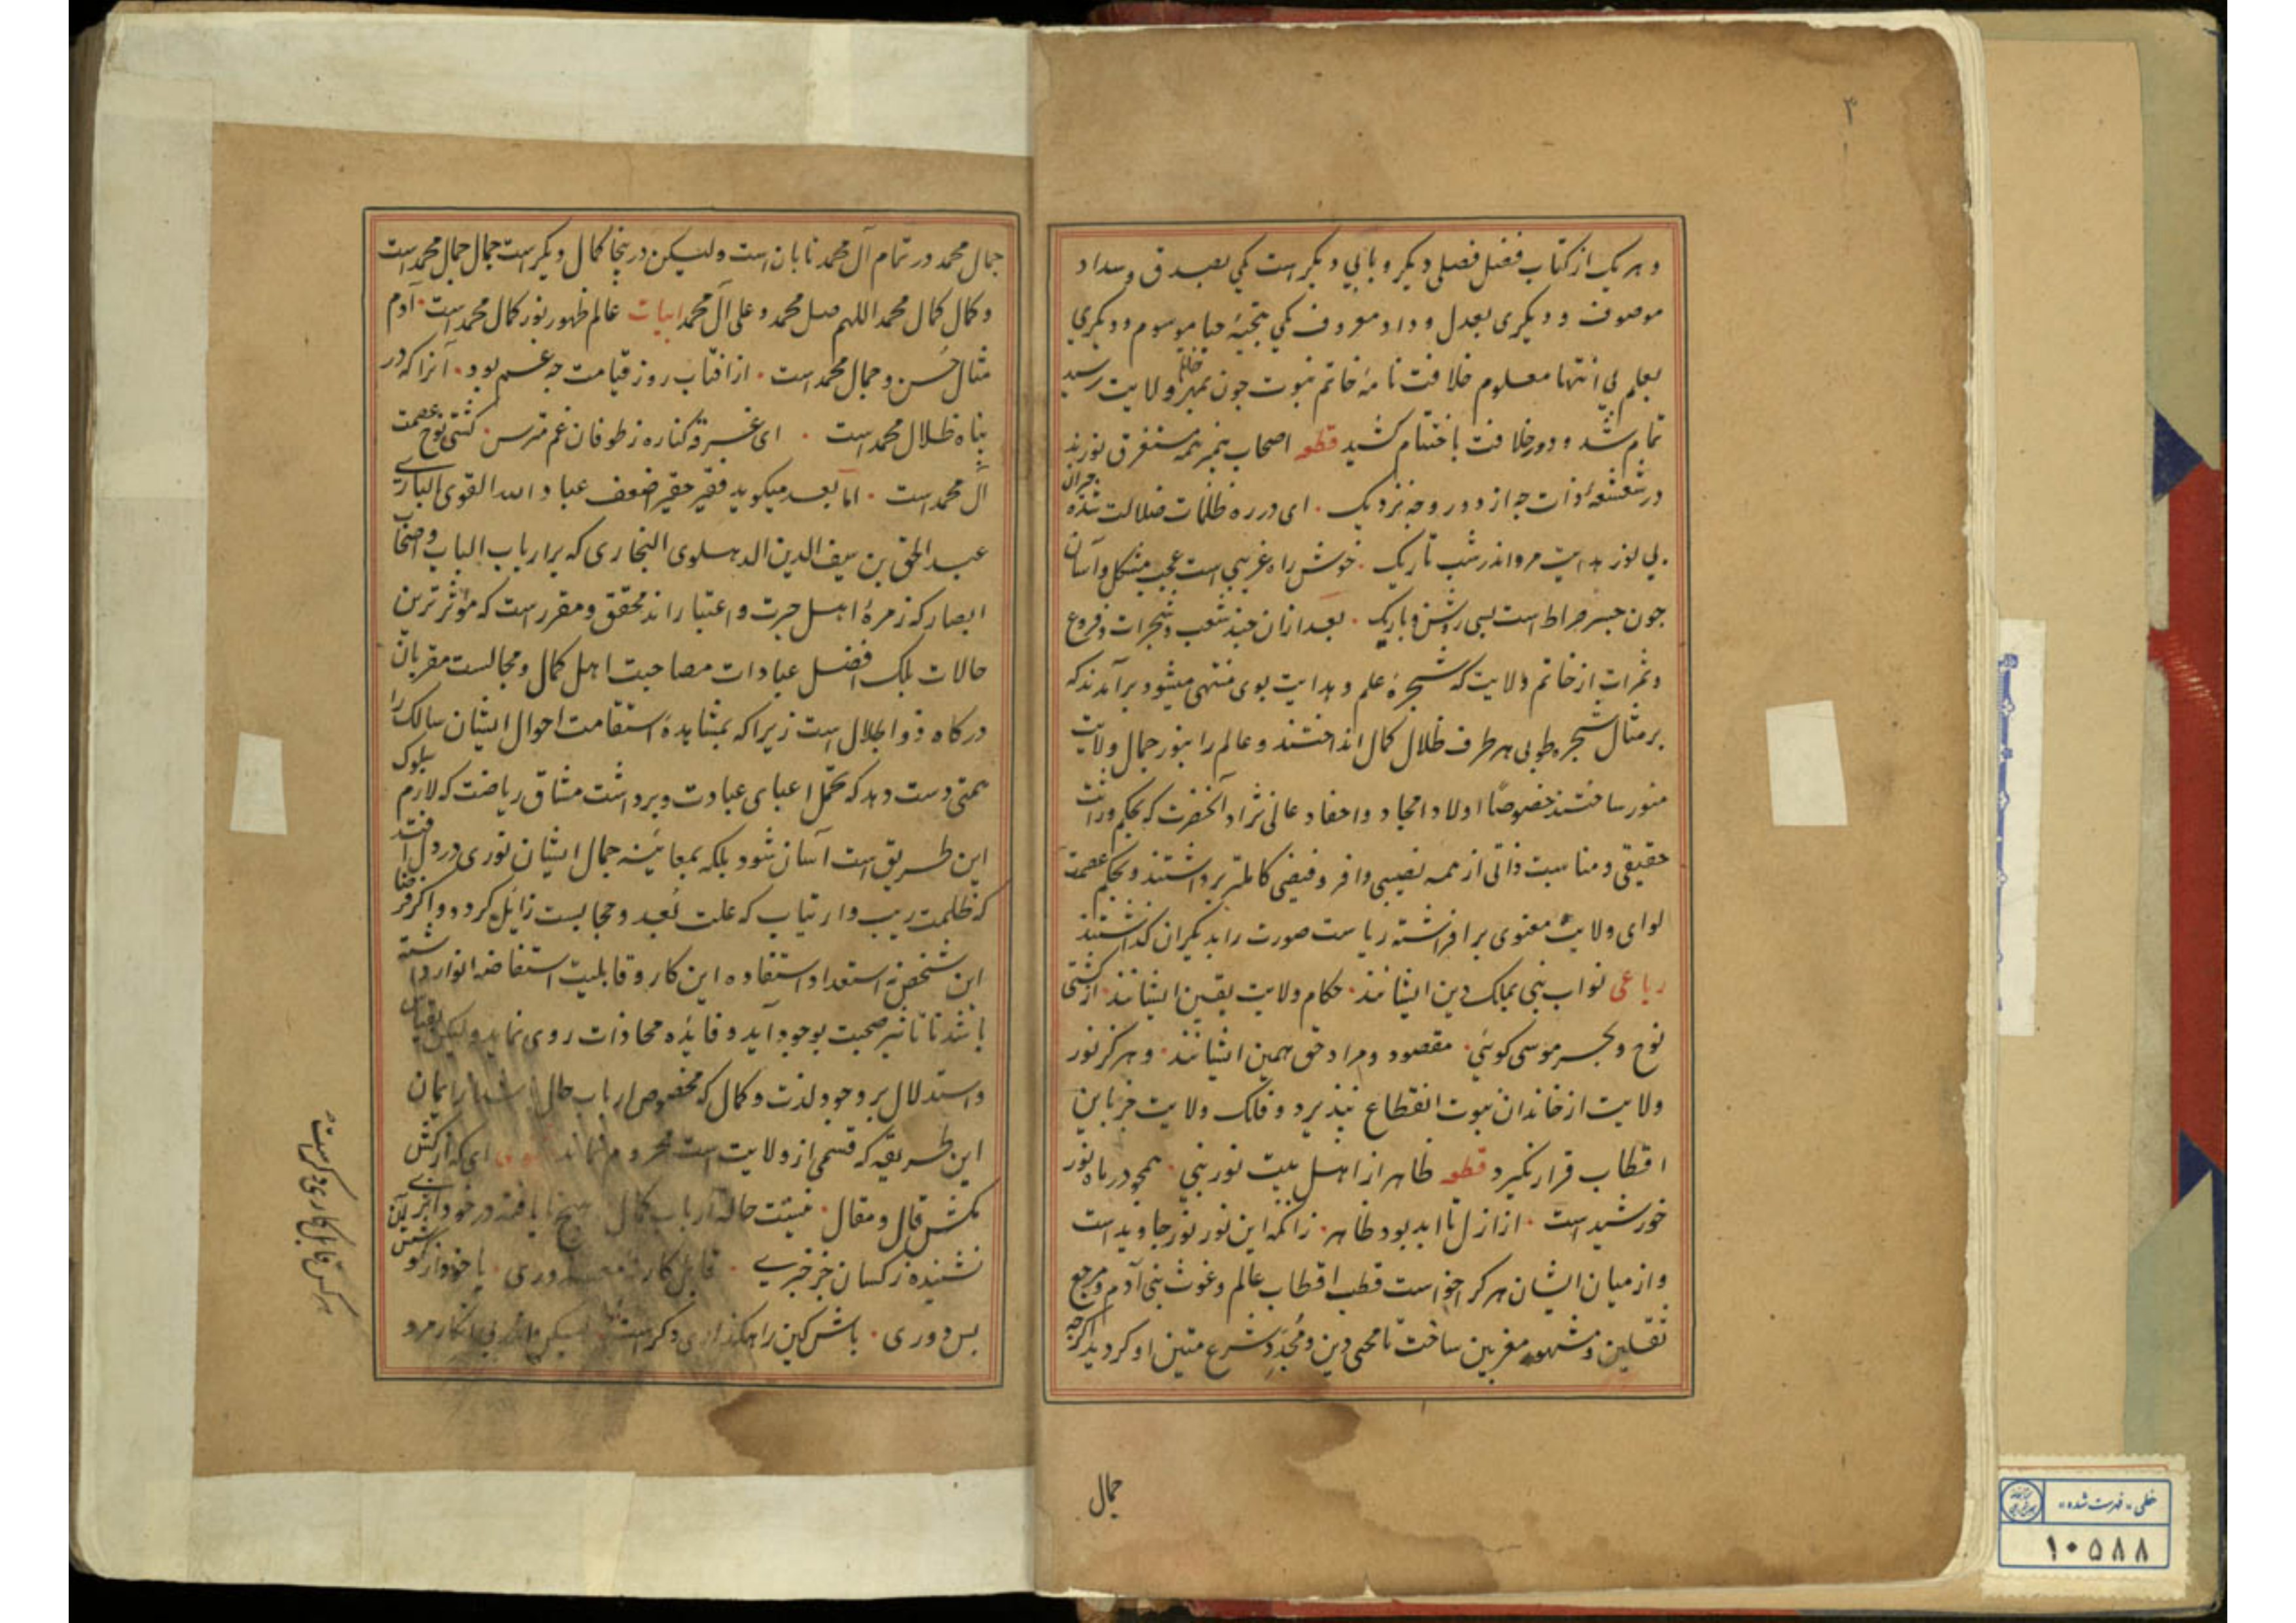 ۳
و هر یک از کتاب فضل فصلی دیگر و بابی دیگر است یکی بصدق و سداد
موصوف و دیگری بعدل و داد معروف یکی بتحیۀ حیا موسوم و دیگری
بعلم بی انتها معلوم خلافت نامۀ خاتم نبوت چون بمهر خاتم ولایت رسید
تمام شد و دور خلافت باختتام کشید قطعه اصحاب پیمبر همه مستغرق نورند
در شعشعۀ ذات چه از دور و چه نزدیک ۰ ای در ره ظلمات ضلالت شده حیران
بی نور هدایت مرو اندر شب تاریک ۰ خوش راه غریبی است عجب مشکل و آسان
چون جسر صراط است بسی روشن و باریک ۰ بعد ازان چند شعب و شجرات و فروع
و ثمرات از خاتم ولایت که شجرۀ علم و هدایت بوی منتهی میشود برآمدند که
بر مثال شجره طوبی هر طرف ظلال کمال انداختند و عالم را بنور جمال ولایت
منور ساختند خصوصًا اولاد امجاد و احفاد عالی نژاد آنحضرت که بحکم وراثت
حقیقی و مناسبت ذاتی از همه نصیبی وافر و فیضی کاملتر برداشتند و بحکم عصمت
لوای ولایت معنوی برافراشته ریاست صورت را بدیگران گذاشتند
رباعی نواب نبی بملک دین ایشانند ۰ حکام ولایت یقین ایشانند ۰ از کشتی
نوح و بحر موسی کوئی ۰ مقصود و مراد حق همین ایشانند ۰ و هرگز نور
ولایت از خاندان نبوت انقطاع نپذیرد و فلک ولایت جز باین
اقطاب قرار نگیرد قطعه ظاهر از اهل بیت نور نبی ۰ همچو در ماه نور
خورشید است ۰ از ازل تا ابد بود ظاهر ۰ زانکه این نور نور جاوید است
و از میان ایشان هر کرا خواست قطب اقطاب عالم و غوث بنی آدم و مرجع
ثقلین و مشهور مغربین ساخت تا محیی دین و مجدد شرع متین او گردید اگرچه
جمال
جمال محمد در تمام آل محمد تابان است ولیکن در ینجا کمال دیگر است جمال جمال محمد است
و کمال کمال محمد اللهم صل محمد و علی آل محمد ابیات عالم ظهور نور کمال محمد است ۰ آدم
مثال حُسن و جمال محمد است ۰ از افتاب روز قیامت چه غم بود ۰ آنرا که در
پناه ظلال محمد است ۰ ای غرقه کناره ز طوفان غم مترس ۰ کشتی نوح عصمت
آل محمد است ۰ اما بعد میگوید فقیر حقیر اضعف عباد الله القوی الباری
عبد الحق بن سیف الدین الدهلوی البخاری که بر ارباب الباب و اصحاب
ابصار که زمرۀ اهل خبرت و اعتبار اند محقق و مقرر است که مؤثرترین
حالات بلک افضل عبادات مصاحبت اهل کمال و مجالست مقربان
درکاه ذو الجلال است زیرا که بمشاهدۀ استقامت احوال ایشان سالک را
همتی دست دهد که تحمّل اعبای عبادت و برداشت مشاق ریاضت که لازم سلوک
این طریق است آسان شود بلکه بمعاینه جمال ایشان نوری در دل افتد
که ظلمت ریب و ارتیاب که علت بُعد و حجابست زایل کردد و اگر فرضا
این شخص را استعداد استفاده این کار و قابلیت استفاضه انوار داشته
باشد تا تاثیر صحبت بوجود آید و فایده محاذات روی نماید ولیکن بقیاس
و استدلال بر وجود لذت و کمال که مخصوص ارباب حال از ایمان
این طریقه که قسمی از ولایت است محروم نماند ای که از کشمکش
قال و مقال ۰ نیست حالت ارباب کمال هیچ نایافته در خود اثری
نشنیده ز کسان جز خبری ۰ قابل کار
بس دوری ۰ باش کین راهگذار دگر است
هر کس قابل کاری دگرست
خطی «فهرست شده»
۱۰۵۸۸